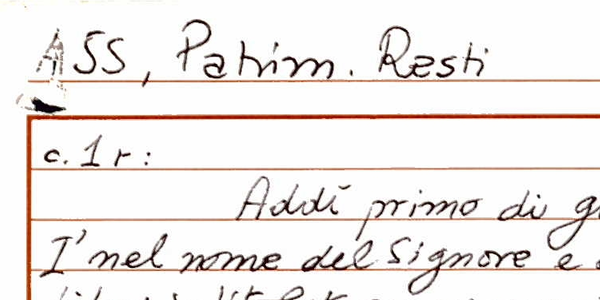 ASS, Patrim. Resti
c. 1 r:
Addì primo di
I' nel nome del Signore e